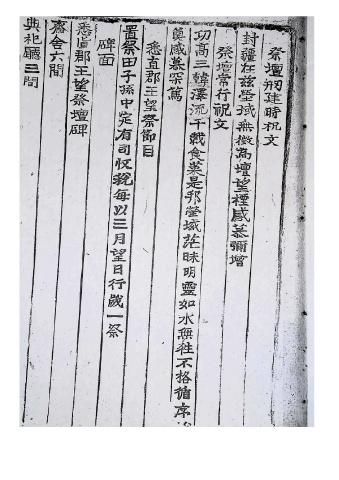 祭壇刱建時祝文
封疆在玆塋域無徵為壇望禋感慕彌增
祭壇常行祝文
功高三韓澤流千載食菜是邦瑩域茫昧明靈如水無往不格循序
奠感慕冞篤
悉直郡王望祭節目
置祭田子孫中定有司收稅每以三月望日行歲一祭
碑面
悉直郡王望祭壇碑
齋舍六間
典祀廳三間